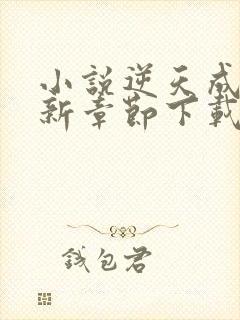 小說逆天成
新章節下載
錢包君